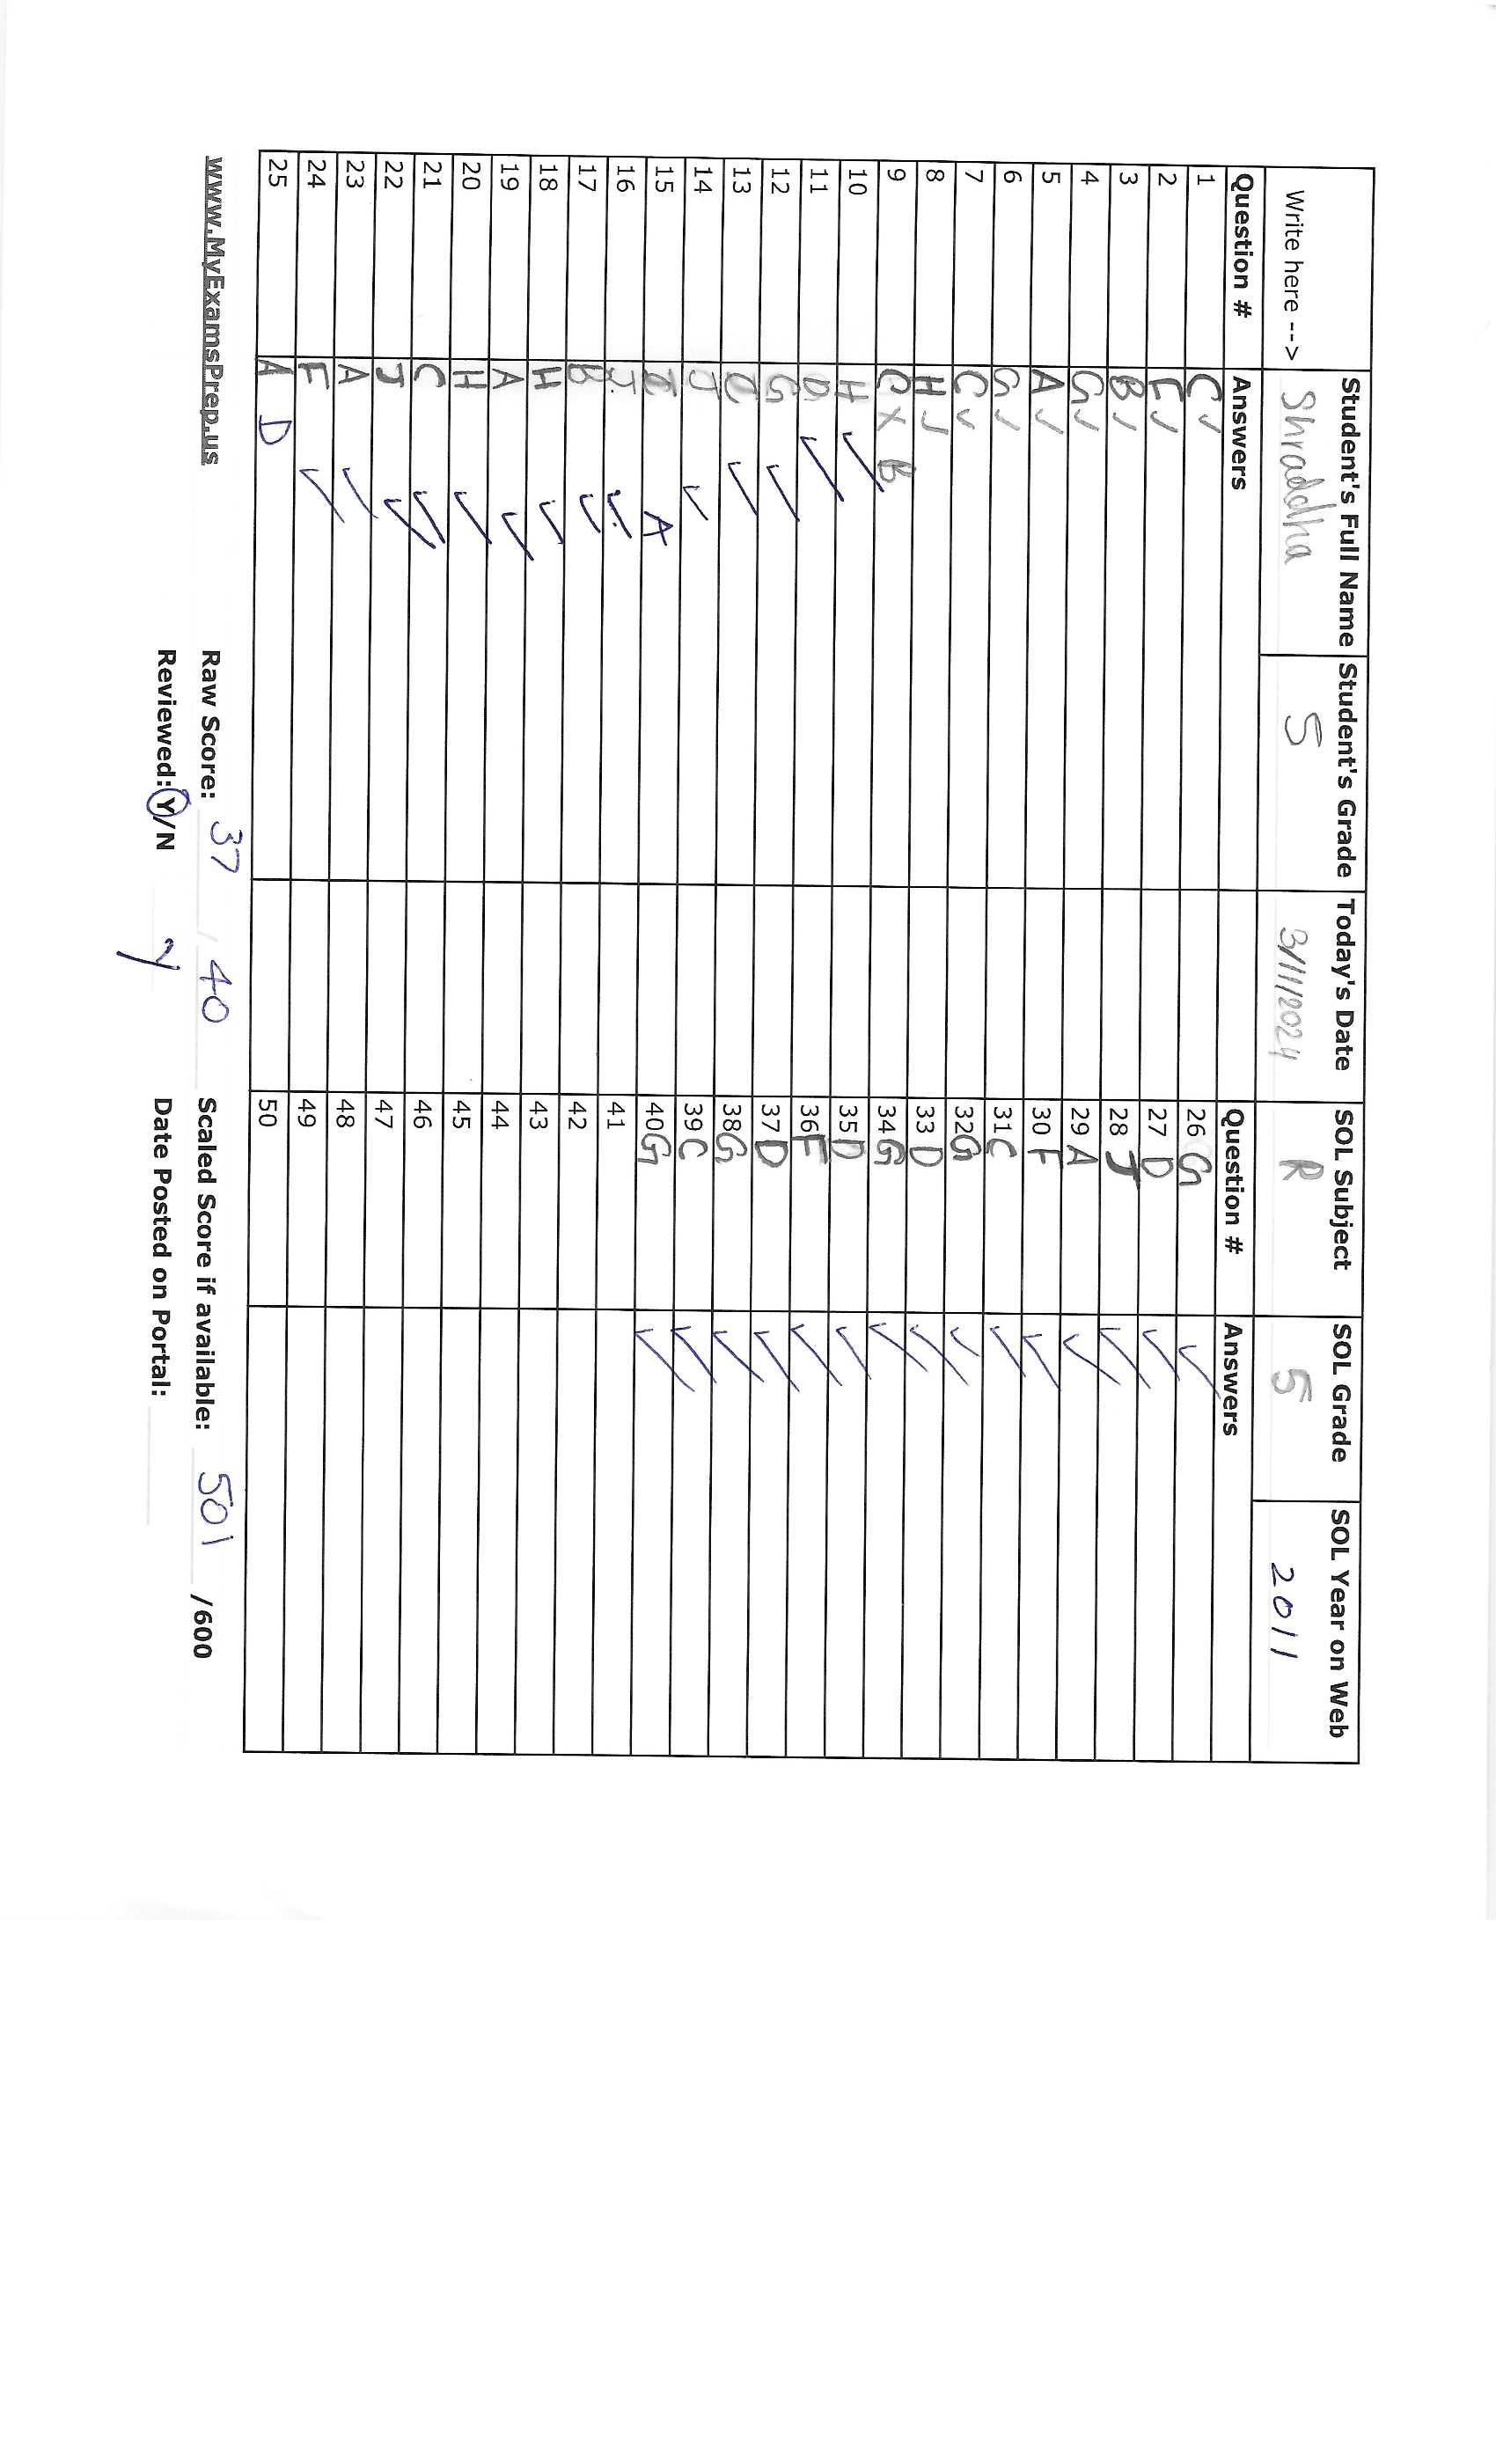 Student's Full Name Student's Grade Today's Date SOL Subject SOL Grade SOL Year on Web
Write here --> Shraddha 5 3/11/2024 R 5 2011
Question # Answers Question # Answers
1 C ✓ 26 G ✓
2 F ✓ 27 D ✓
3 B ✓ 28 J ✓
4 G ✓ 29 A ✓
5 A ✓ 30 F ✓
6 G ✓ 31 C ✓
7 C ✓ 32 G ✓
8 H ✓ 33 D ✓
9 C X B 34 G ✓
10 H ✓ 35 D ✓
11 D ✓ 36 F ✓
12 G ✓ 37 D ✓
13 C ✓ 38 G ✓
14 J ✓ 39 C ✓
15 A 40 G ✓
16 J ✓ 41
17 B ✓ 42
18 H ✓ 43
19 A ✓ 44
20 H ✓ 45
21 C ✓ 46
22 J ✓ 47
23 A ✓ 48
24 F ✓ 49
25 A D 50
www.MyExamsPrep.us Raw Score: 37 / 40 Scaled Score if available: 501 /600
Reviewed: Y/N y Date Posted on Portal: